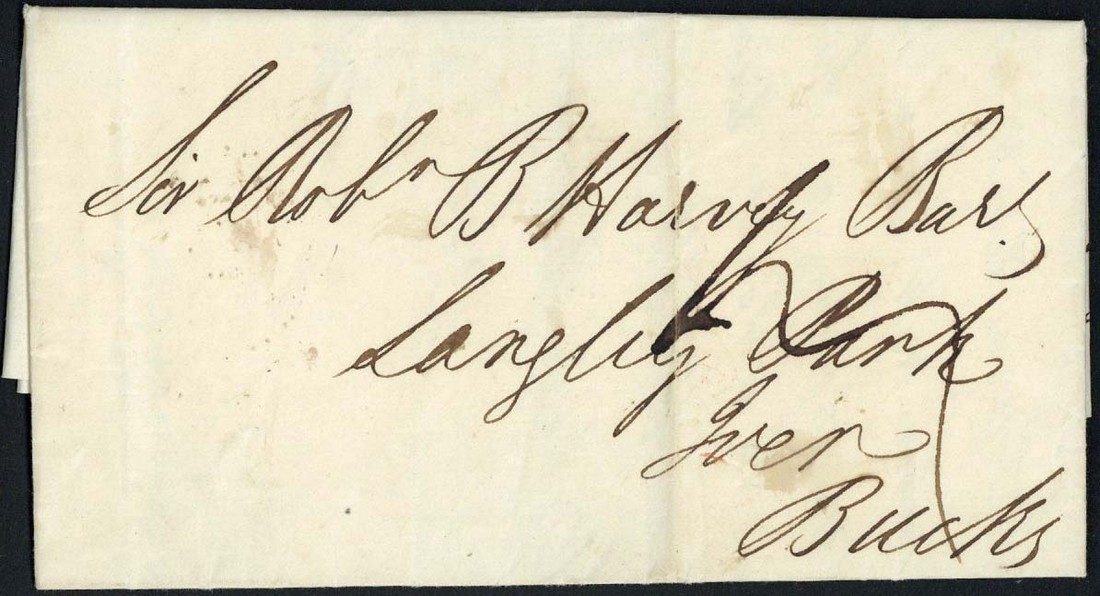 Sir Robt B Harvey Bart
Langley Park
Iver
Bucks